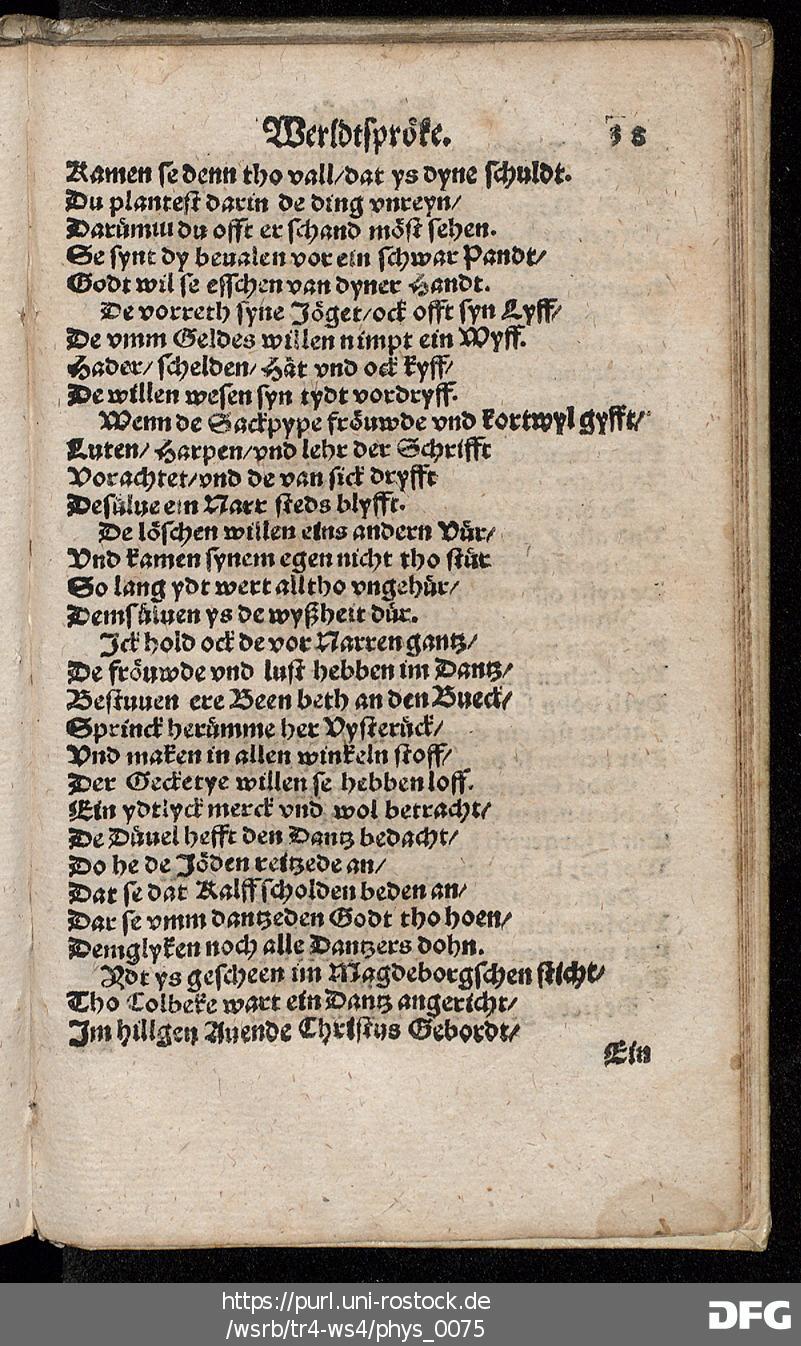 Werldtspröke. 38
Kamen se denn tho vall/dat ys dyne schuldt.
Du plantest darin de ding vnreyn/
Darümm du offt er schand möst sehen.
Se synt dy beualen vor ein schwar Pandt/
Godt wil se esschen van dyner Handt.
De vorreth syne Jöget/ock offt syn Lyff/
De vmm Geldes willen nimpt ein Wyff.
Hader/ schelden/ Hät vnd ock kyff/
De willen wesen syn tydt vordryff.
Wenn de Sackpype fröuwde vnd kortwyl gyfft/
Luten/ Harpen/vnd lehr der Schrifft
Vorachtet/vnd de van sick dryfft
Desülue ein Narr steds blyfft.
De löschen willen eins andern Vür/
Vnd kamen synem egen nicht tho stür
So lang ydt wert alltho vngehür/
Demsüluen ys de wyßheit dür.
Jck hold ock de vor Narren gantz/
De fröuwde vnd lust hebben im Dantz/
Bestuuen ere Been beth an den Bueck/
Sprinck herümme her Vysterück/
Vnd maken in allen winkeln stoff/
Der Geckerye willen se hebben loff.
Ein ydtlyck merck vnd wol betracht/
De Düuel hefft den Dantz bedacht/
Do he de Jöden reitzede an/
Dat se dat Kalff scholden beden an/
Dar se vmm dantzeden Godt tho hoen/
Demglyken noch alle Dantzers dohn.
Ydt ys gescheen im Magdeborgschen sticht/
Tho Colbeke wart ein Dantz angericht/
Jm hilligen Auende Christus Gebordt/
Ein
https://purl.uni-rostock.de
/wsrb/tr4-ws4/phys_0075
DFG